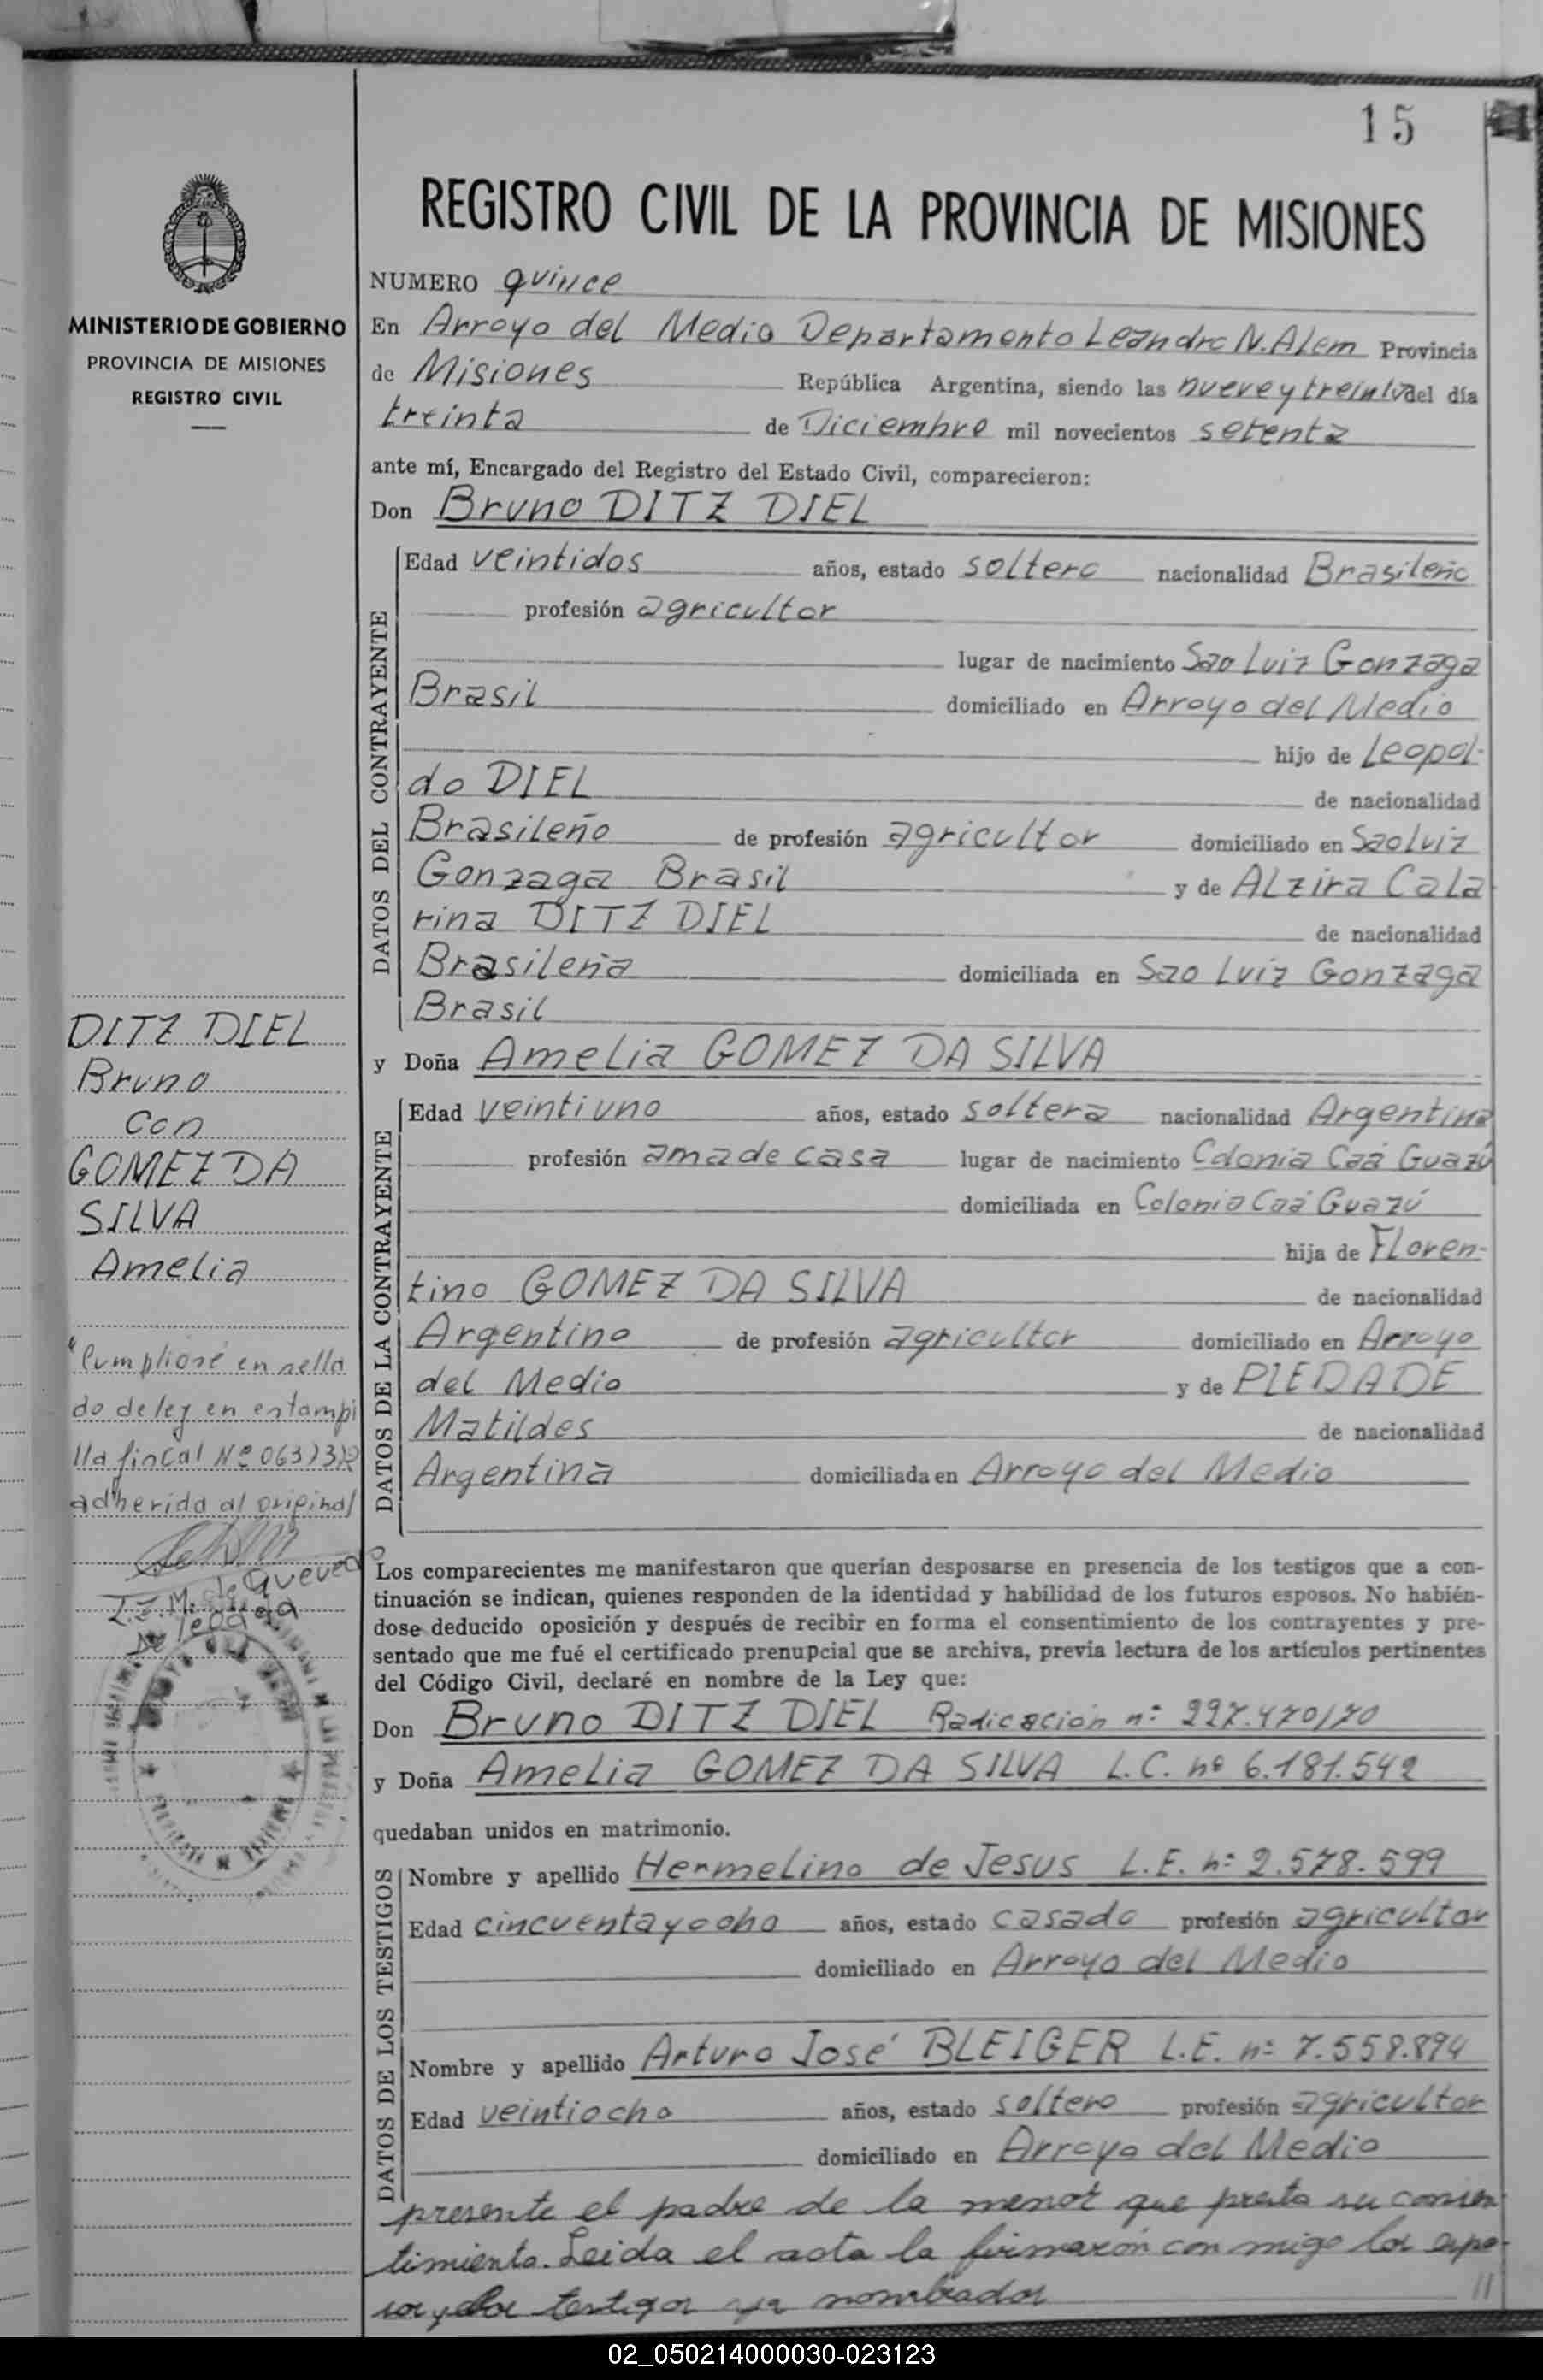 15
REGISTRO CIVIL DE LA PROVINCIA DE MISIONES
MINISTERIO DE GOBIERNO
PROVINCIA DE MISIONES
REGISTRO CIVIL
NUMERO quince
En Arroyo del Medio Departamento Leandro N. ALem Provincia
de Misiones República Argentina, siendo las nueve y treinta del día
treinta de Diciembre mil novecientos setenta
ante mí, Encargado del Registro del Estado Civil, comparecieron:
Don Bruno DITZ DIEL
DATOS DEL CONTRAYENTE
Edad veintidos años, estado soltero nacionalidad Brasileño
profesión agricultor
lugar de nacimiento Sao Luiz Gonzaga
Brasil domiciliado en Arroyo del Medio
hijo de Leopol-
do DIEL de nacionalidad
Brasileño de profesión agricultor domiciliado en Sao Luiz
Gonzaga Brasil y de ALzira Cata
rina DITZ DIEL de nacionalidad
Brasileña domiciliada en Sao Luiz Gonzaga
Brasil
y Doña Amelia GOMEZ DA SILVA
DATOS DE LA CONTRAYENTE
Edad veintiuno años, estado soltera nacionalidad Argentina
profesión ama de casa lugar de nacimiento Colonia Caá Guazú
domiciliada en Colonia Caá Guazú
hija de FLoren-
tino GOMEZ DA SILVA de nacionalidad
Argentino de profesión agricultor domiciliado en Arroyo
del Medio y de PIEDADE
Matildes de nacionalidad
Argentina domiciliada en Arroyo del Medio
DITZ DIEL
Bruno
con
GOMEZ DA
SILVA
Amelia
"Cumpliose en sella
do de ley en estampi
lla fiscal Nº
adherida al original
I.Z.M. de Quevedo
Delegada
Los comparecientes me manifestaron que querían desposarse en presencia de los testigos que a con-
tinuación se indican, quienes responden de la identidad y habilidad de los futuros esposos. No habién-
dose deducido oposición y después de recibir en forma el consentimiento de los contrayentes y pre-
sentado que me fué el certificado prenupcial que se archiva, previa lectura de los artículos pertinentes
del Código Civil, declaré en nombre de la Ley que:
Don Bruno DITZ DIEL Radicación nº 227.470/70
y Doña Amelia GOMEZ DA SILVA L.C. nº 6.181.542
quedaban unidos en matrimonio.
DATOS DE LOS TESTIGOS
Nombre y apellido Hermelino de Jesus L.E. nº 2.578.599
Edad cincuenta y ocho años, estado casado profesión agricultor
domiciliado en Arroyo del Medio
Nombre y apellido Arturo José BLEIGER L.E. nº 7.558.894
Edad veintiocho años, estado soltero profesión agricultor
domiciliado en Arroyo del Medio
presente el padre de la menor que presta su consen
timiento. Leida el acta la firmaron con migo los espo-
sos y los testigos ya nombrados //
02_050214000030-023123